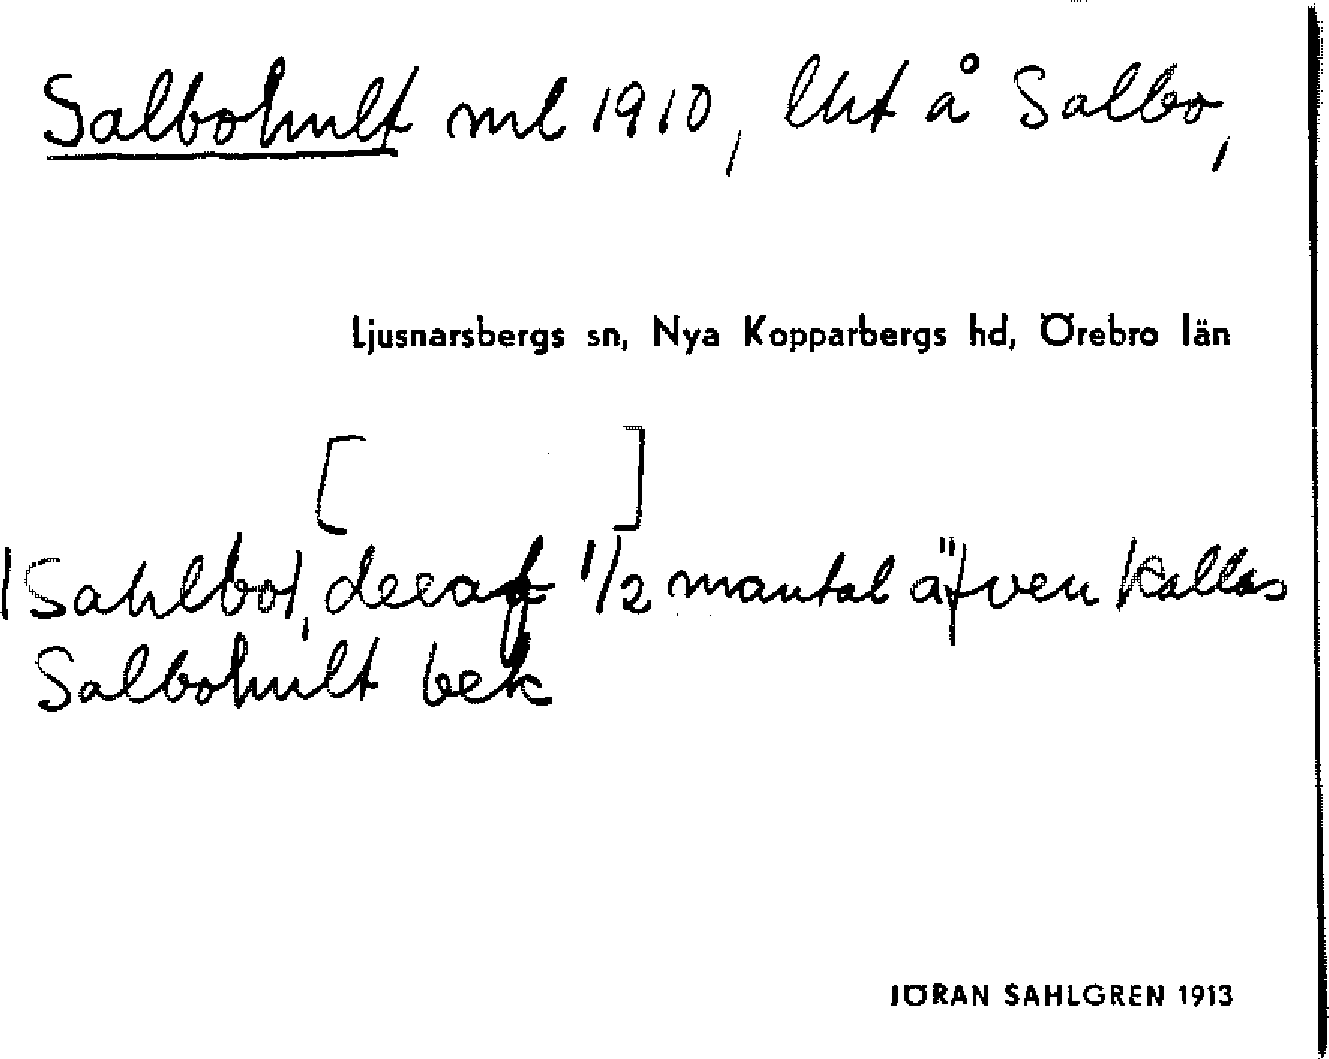 Salbohult ml 1910, lht å Salbo,
Ljusnarsbergs sn, Nya Kopparbergs hd, Örebro län
[ ]
|Sahlbo|, deraf 1/2 mantal äfven kallas
Salbohult bek
JÖRAN SAHLGREN 1913